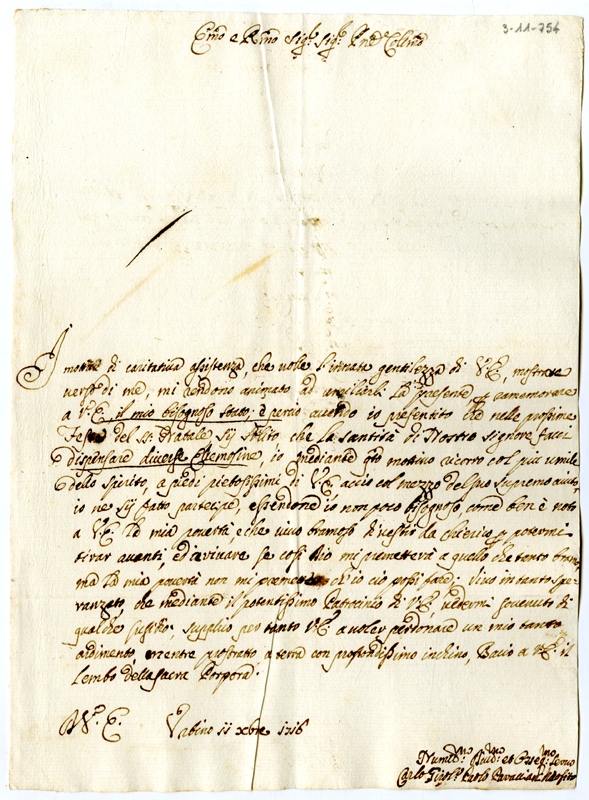 3-11-754
Em̃o e Rm̃o Sig.r Sig.r Pñe Colmo
I motivi di caritativa assistenza, che volle l'innata gentilezza di V.E. mostrare
verso di me, mi rendono animato ad umiliarli la presente p ramemorare
a V.E. il mio bisognoso stato, e perciò avendo io presentito che nelle prossime
Feste del S. Natale sij solito che la santità di Nostro Signore facci
dispensare diverse Elemosine, io mediante qto motivo ricorro col più umile
dello spirito, a piedi pietosissimi di V.E. acciò col mezzo del suo supremo aiuto,
io ne sij fatto partecipe, essendone io non poco bisognoso, come ben è noto
a V.E. la mia povertà, e che vivo bramoso di vestir da chierico p potermi
tirar avanti, ed arrivare se così Dio mi permetterà a quello che tanto bramo,
ma la mia povertà non mi permette ch'io ciò possi fare: vivo in tanto spe-
ranzato, che mediante il potentissimo Patrocinio di V.E. vedermi sovenuto di
qualche susidio; supplico per tanto V.E. a voler perdonare un mio tanto
ardimento, mentre prostrato a terra con profondissimo inchino, Bacio a V.E. il
Lembo della sacra Porpora.
D V.E. Urbino 11 xbre 1716
Humilmo Divmo et Obseqmo servo
Carlo Figlo Paolo Neofito